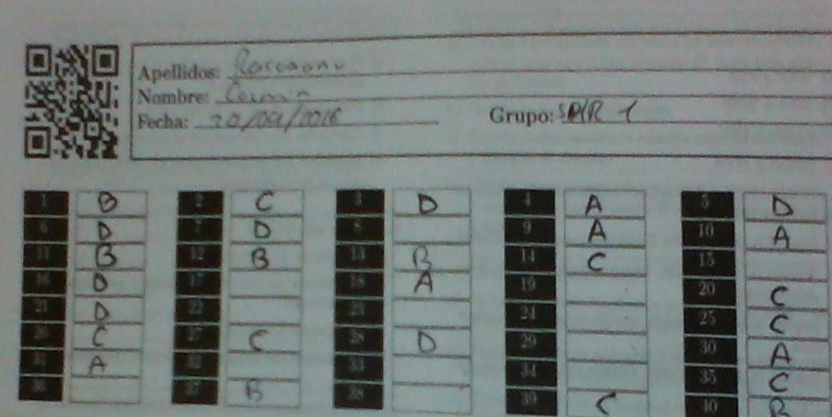 Apellidos:
Nombre:
Fecha: 20/04/2016 Grupo: SMR 1
1 B 2 C 3 D 4 A 5 D
6 D 7 D 8 9 A 10 A
11 B 12 B 13 B 14 C 15
16 17 18 A 19 20 C
21 D 22 23 24 25 C
26 C 27 C 28 D 29 30 A
31 A 32 33 34 35 C
36 37 B 38 39 C 40 B